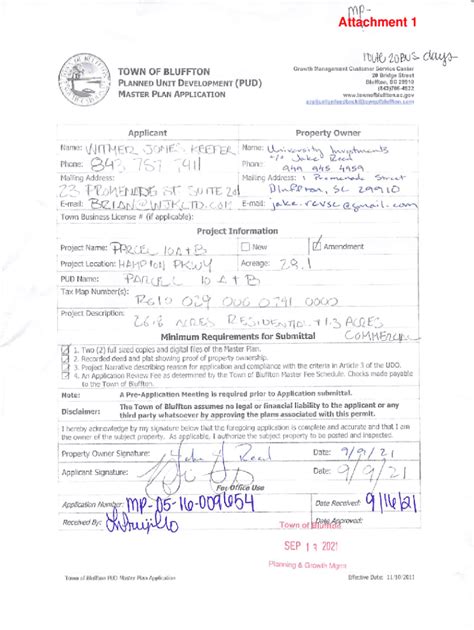 MP-
Attachment 1
TOWN OF BLUFFTON
PLANNED UNIT DEVELOPMENT (PUD)
MASTER PLAN APPLICATION
Growth Management Customer Service Center
20 Bridge Street
Bluffton, SC 29910
(843)706-4522
www.townofbluffton.us
applicationfeedback@townofbluffton.com
Applicant Property Owner
Name: WITMER JONES KEEFER Name: University Investments
c/o Jake Reed
Phone: 843 757 7411 Phone: 949 945 4959
Mailing Address: Mailing Address: 1 Promenade Street
23 PROMENADE ST SUITE 201 Bluffton, SC 29910
E-mail: BRIAN@WJKLTD.COM E-mail: jake.rcvsc@gmail.com
Town Business License # (if applicable):
Project Information
Project Name: PARCEL 10A+B New Amendment
Project Location: HAMPTON PKWY Acreage: 29.1
PUD Name: PARCEL 10 A+B
Tax Map Number(s):
R610 029 000 0241 0000
Project Description:
ACRES RESIDENTIAL + 1.3 ACRES
COMMERCIAL
Minimum Requirements for Submittal
1. Two (2) full sized copies and digital files of the Master Plan.
2. Recorded deed and plat showing proof of property ownership.
3. Project Narrative describing reason for application and compliance with the criteria in Article 3 of the UDO.
4. An Application Review Fee as determined by the Town of Bluffton Master Fee Schedule. Checks made payable
to the Town of Bluffton.
Note: A Pre-Application Meeting is required prior to Application submittal.
Disclaimer: The Town of Bluffton assumes no legal or financial liability to the applicant or any
third party whatsoever by approving the plans associated with this permit.
I hereby acknowledge by my signature below that the foregoing application is complete and accurate and that I am
the owner of the subject property. As applicable, I authorize the subject property to be posted and inspected.
Property Owner Signature: Jake J Reed Date: 9/9/21
Applicant Signature: Date: 9/9/21
For Office Use
Application Number: MP-05-16-009654 Date Received: 9/16/21
Received By: Date Approved:
Town of Bluffton
SEP 17 2021
Planning & Growth Mgmt
Town of Bluffton PUD Master Plan Application Effective Date: 11/30/2011